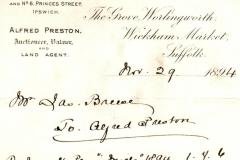 AND No 6, PRINCES STREET,
IPSWICH.
ALFRED PRESTON,
Auctioneer, Valuer,
AND
LAND AGENT.
The Grove, Worlingworth,
Wickham Market,
Suffolk,
Nov. 29 1894
Mr Jas. Breese
To Alfred Preston